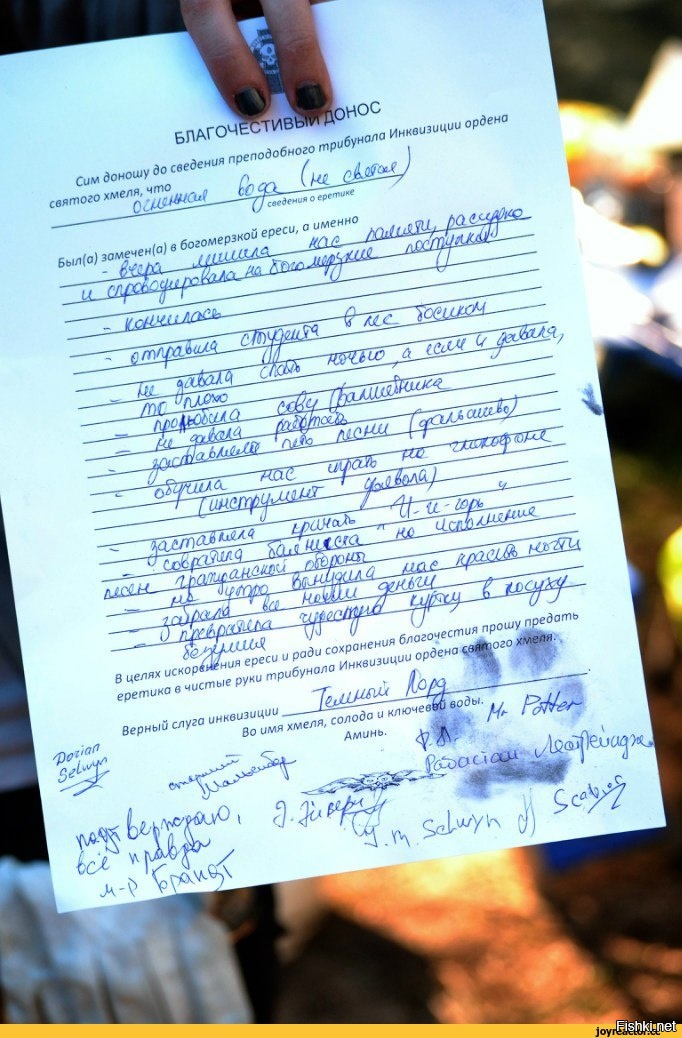 БЛАГОЧЕСТИВЫЙ ДОНОС
Сим доношу до сведения преподобного трибунала Инквизиции ордена
святого хмеля, что огненная вода (не святая)
сведения о еретике
Был(а) замечен(а) в богомерзкой ереси, а именно
- вчера лишила нас памяти, рассудка
и спровоцировала на богомерзкие поступки
- кончилась
- отправила студента в лес босиком
- не давала спать ночью, а если и давала,
то плохо
- сову (валшебника
- не давала работать
- заставляла петь песни (фальшиво)
- обучила нас играть на глюкофоне
(инструмент дьявола)
- заставляла кричать "И-и-горь"
- совратила баяниста на исполнение
песен гражданской обороны
- на утро вынудила нас красить ногти
- забрала все наши деньги
- превратила чудесную куртку в косуху
безумия
В целях искоренения ереси и ради сохранения благочестия прошу предать
еретика в чистые руки трибунала Инквизиции ордена святого хмеля.
Верный слуга инквизиции Темный Лорд
Во имя хмеля, солода и ключевой воды.
Аминь.
Mr Potter
Dorian
Selwyn
старший
Рабастан Лестрейндж
J. m. Selwyn
Scabior
подтверждаю,
всё правда
м-р Брандт
joyreactor.cc
Fishki.net